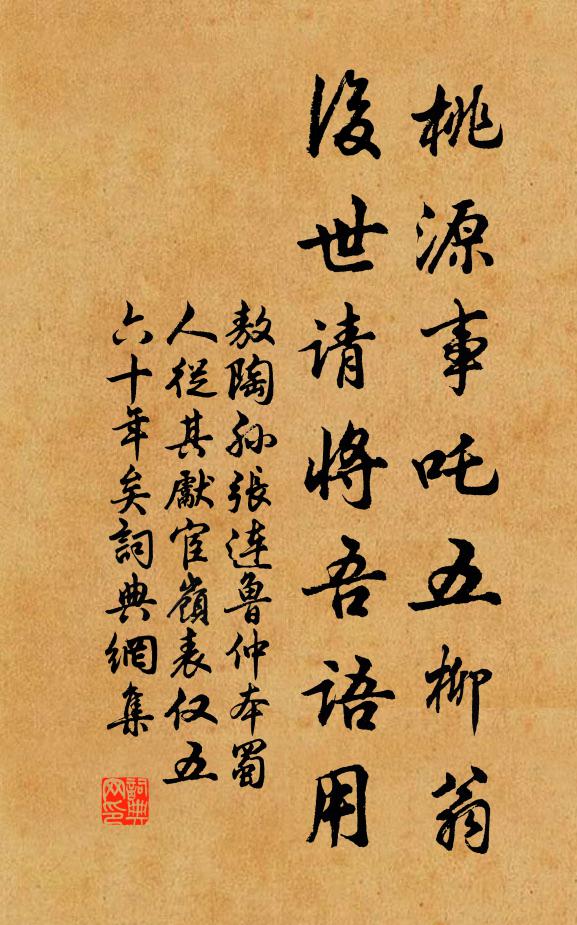 桃源事吒五柳翁
後世请將吾语用
敖陶孙張達魯仲本蜀
人從其獻宦嶺表仅五
六十年矣詞典網集
詞典网印